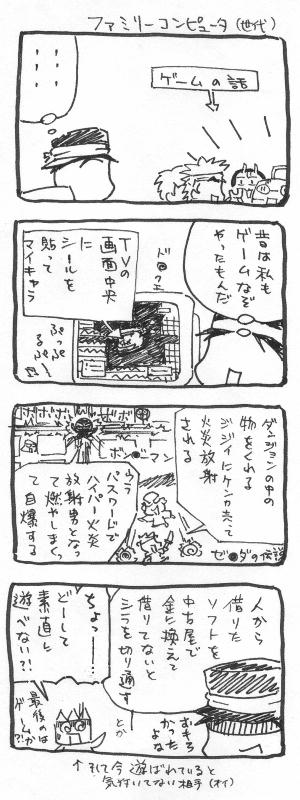 ファミリーコンピュータ(世代)
・・・・・・
ゲームの話
昔は私も
ゲームなぞ
やったもんだ
ド●クエ
TVの
画面中央
に
シールを
貼って
マイキャラ
ぷっぷ
るぷー
ダンジョンの中の
物をくれる
ジジイにケンカ売って
火炎放射
される
ゼ●ダの伝説
ボボボ
ボン●ーマン
ウラ
パスワードで
ハイパー火炎
放射男となっ
て燃やしまくっ
て自爆する
人から
借りた
ソフトを
中古屋で
金に換えて
借りてないと
シラを切り通す
とか
おもろ
かった
よな
ちょっ──
……
どーして
素直に
遊べない?!
最後のは
ゲームか?
↑そして今遊ばれていると
気付いてない相手(オイ)